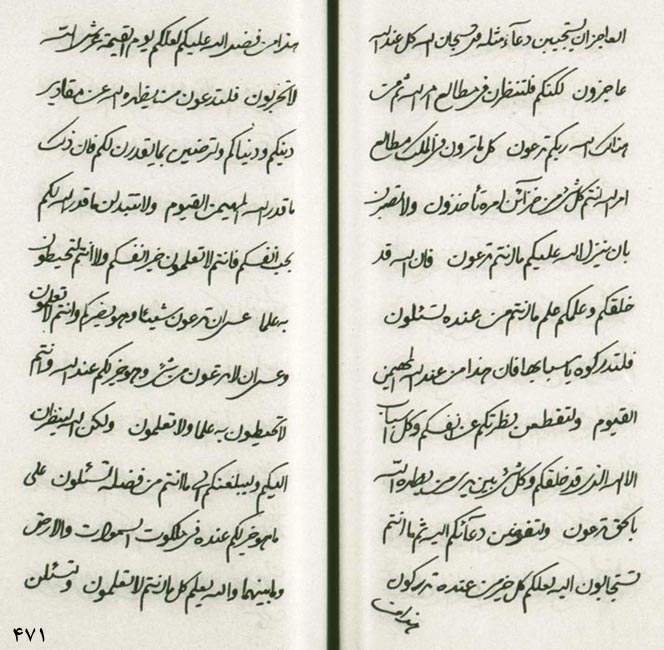 العاجزان يستجيبن دعآء مثله فسبحان الله كل عند الله
عاجزون لكنكم فلتنظرن في مطالع امر الله ثم من
هنالك الله ربكم تدعون كل ما ترون في الملك مطالع
امر الله انتم كل شئ من خزآئن امره تأخذون ولا تصبرن
بان ينزل الله عليكم ما انتم تدعون فان الله قد
خلقكم وعلمكم علم ما انتم من عنده تسئلون
فلتدركوه باسبابها فان هذا من عند الله المهيمن
القيوم ولتقطعن نظرتكم عن انفسكم وكل الاسباب
الا الله الذي قد خلقكم وكل شئ بين يدي من يظهره الله
بالحق تدعون ولتفوضن دعآئكم اليه ثم ما انتم
تستجابون اليه لعلكم كل خير من عنده تدركون
هذا من
هذا من فضل الله عليكم لعلكم يوم القيمة عن عرش الله
لا تحتجبون فلتدعون من يظهره الله عن مقادير
دينكم ودنياكم ولترضين بما يقدرن لكم فان ذلك
ما قدر الله المهيمن القيوم ولا تتبدلن ما قدر الله لكم
بحب انفسكم فانتم لا تعلمون خير انفسكم ولا انتم لتحيطون
به علما عسى ان تدعون شيئا وهو يضركم وانتم لا تعلمون
وعسى ان لا تدعون من شئ وهو خير لكم عند الله وانتم
لا تحيطون به علما ولا تعلمون ولكن الله لينظرن
اليكم وليبلغنكم الى ما انتم من فضله تسئلون على
ما هو خير لكم عنده في ملكوت السموات والارض
وما بينهما والله يعلم كل ما انتم لا تعلمون ولتسئلن
۴۷۱